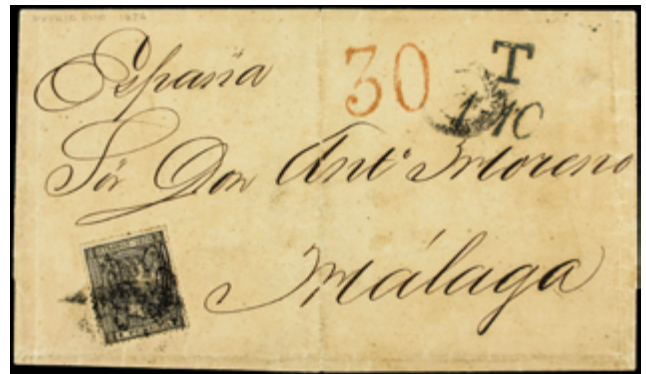 España
30 T
1-10
Sör Don Antº Moreno
Málaga